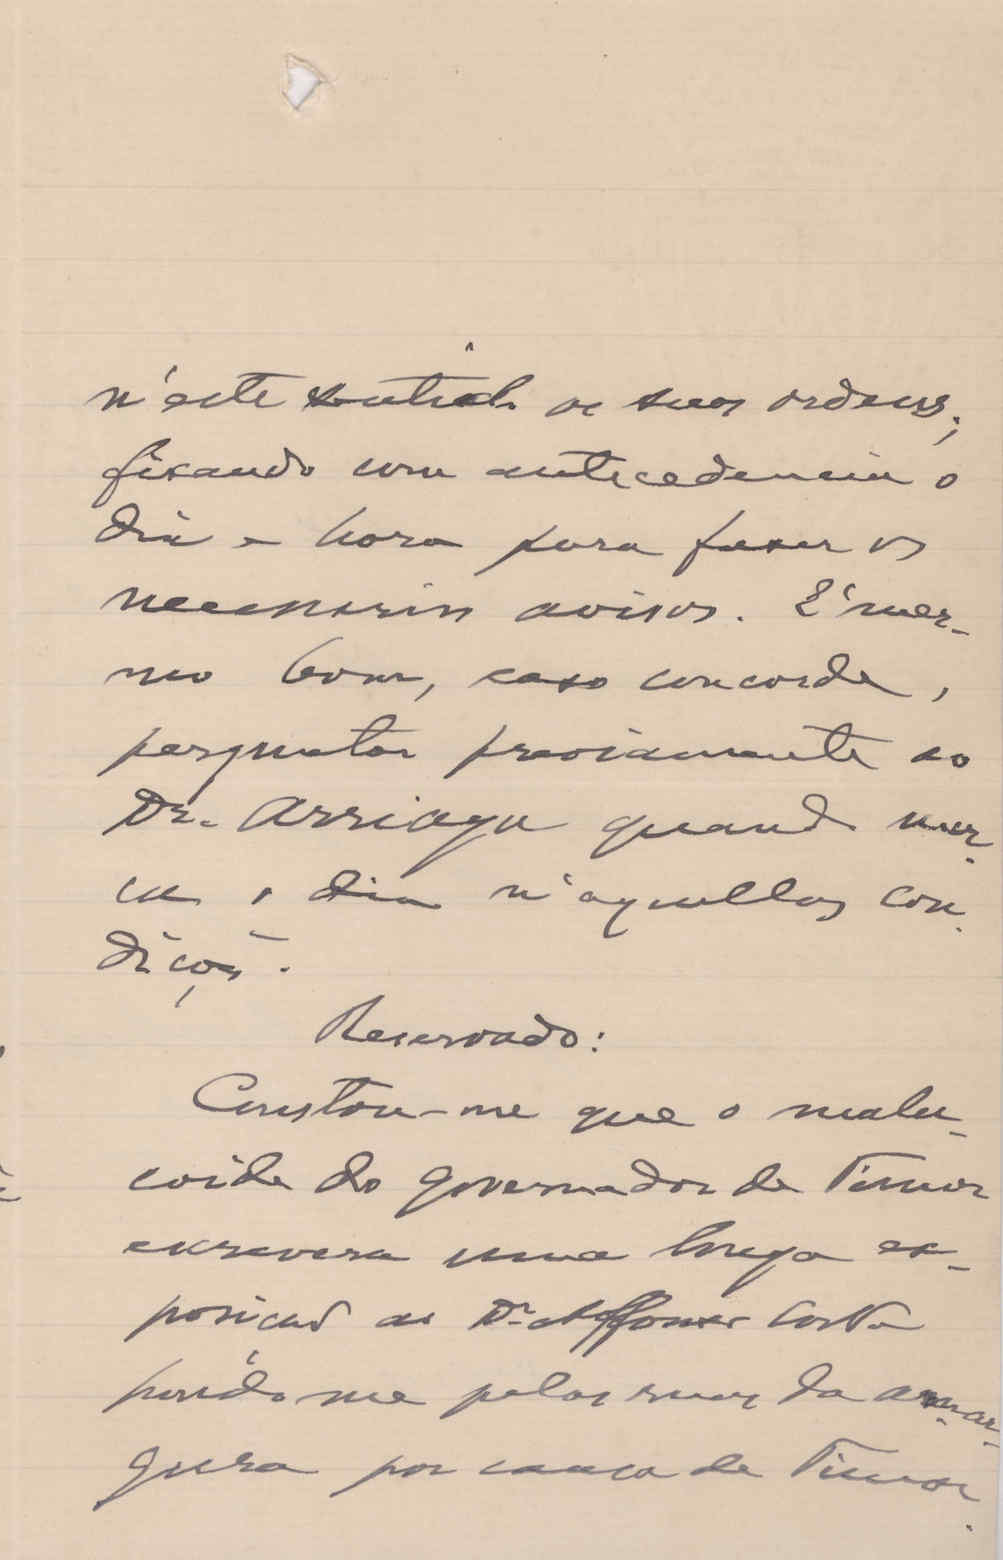 n'este sentido as suas ordens,
fixando com antecedencia o
dia e hora para fazer os
necessarios avisos. E' mes-
mo bom, caso concorde,
perguntar previamente ao
Dr. Arriaga quando mar-
ca o dia n'aquellas con-
dições.
Reservado:
Constou-me que o malu-
coide do governador de Timor
escrevera uma longa ex-
posição ao Dr. Affonso Costa
pondo-me pelas ruas da amar-
gura por causa de Timor.